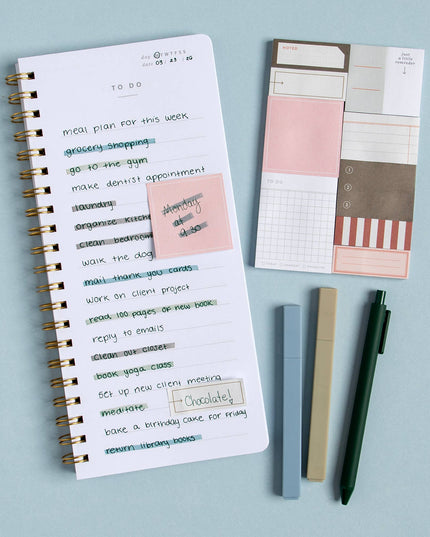 day M T W T F S S
date 03 / 23 / 20
TO DO
meal plan for this week
grocery shopping
go to the gym
make dentist appointment
laundry
organize kitche
clean bedroom
walk the dog
mail thank you cards
work on client project
read 100 pages of new book
reply to emails
clean out closet
book yoga class
set up new client meeting
meditate
bake a birthday cake for Friday
return library books
Monday
at
9:30
→ Chocolate!
NOTES
just
a little
reminder
↓
→
1
2
3
TO DO